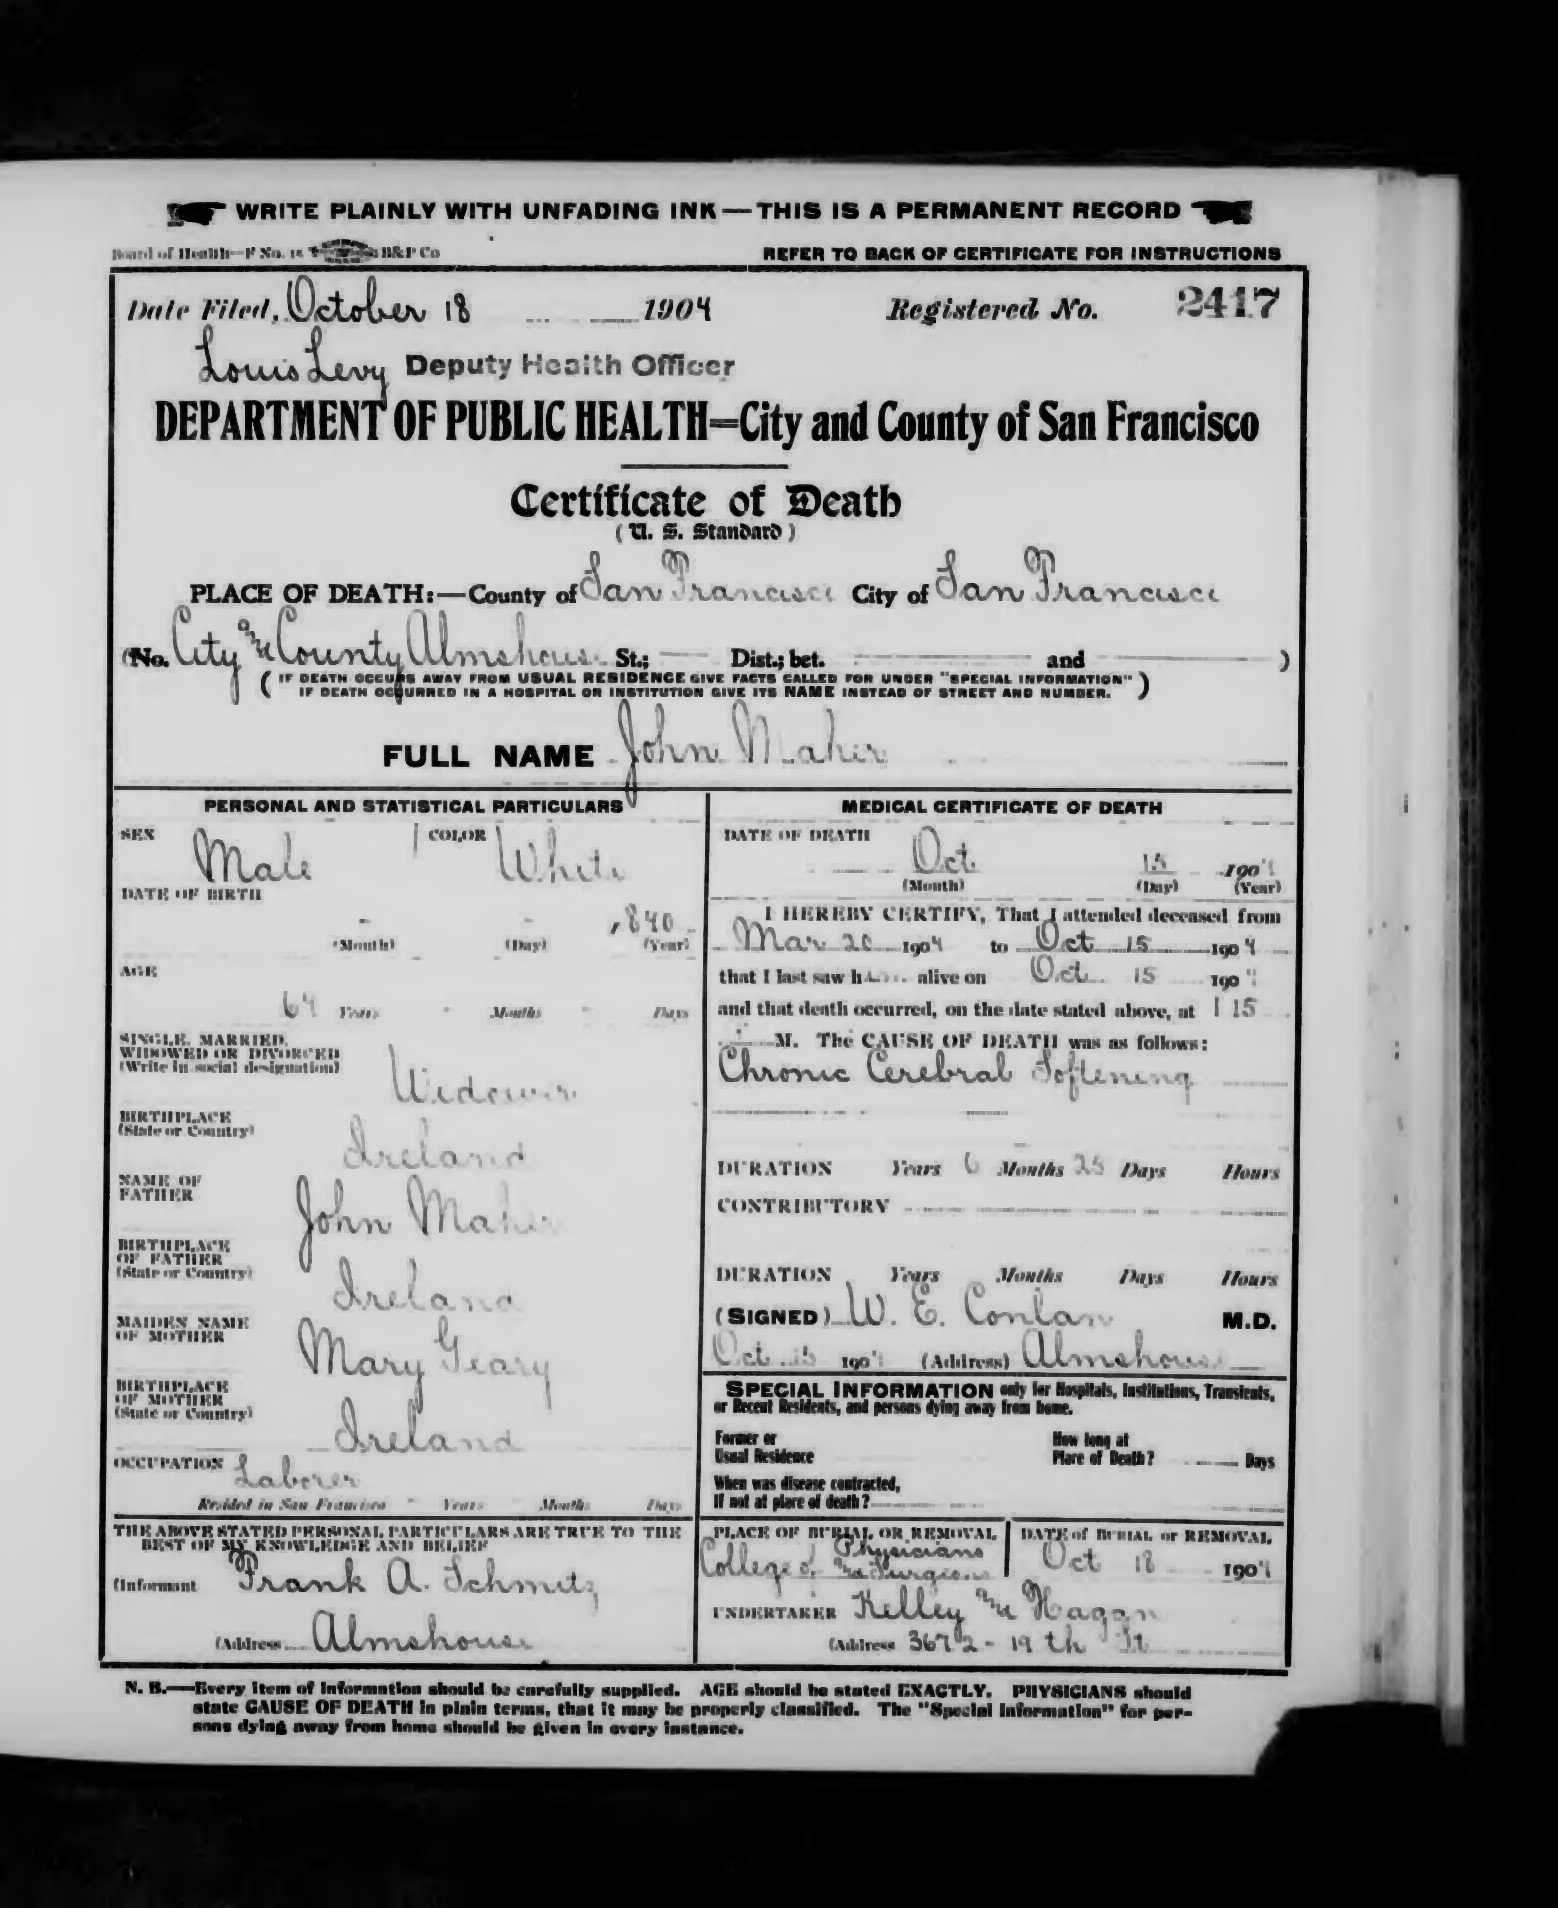 WRITE PLAINLY WITH UNFADING INK—THIS IS A PERMANENT RECORD
Board of Health—F No. 15 B&P Co REFER TO BACK OF CERTIFICATE FOR INSTRUCTIONS
Date Filed, October 18 1904 Registered No. 2417
Louis Levy Deputy Health Officer
DEPARTMENT OF PUBLIC HEALTH=City and County of San Francisco
Certificate of Death
(U. S. Standard)
PLACE OF DEATH:—County of San Francisco City of San Francisco
(No. City and County Almshouse St.; Dist.; bet. and )
(IF DEATH OCCURS AWAY FROM USUAL RESIDENCE GIVE FACTS CALLED FOR UNDER "SPECIAL INFORMATION"
IF DEATH OCCURRED IN A HOSPITAL OR INSTITUTION GIVE ITS NAME INSTEAD OF STREET AND NUMBER.)
FULL NAME John Maher
PERSONAL AND STATISTICAL PARTICULARS
SEX Male COLOR White
DATE OF BIRTH
- - 1840
(Month) (Day) (Year)
AGE
64 Years - Months - Days
SINGLE, MARRIED,
WIDOWED OR DIVORCED
(Write in social designation) Widower
BIRTHPLACE
(State or Country) Ireland
NAME OF
FATHER John Maher
BIRTHPLACE
OF FATHER
(State or Country) Ireland
MAIDEN NAME
OF MOTHER Mary Geary
BIRTHPLACE
OF MOTHER
(State or Country) Ireland
OCCUPATION Laborer
Resided in San Francisco - Years Months Days
THE ABOVE STATED PERSONAL PARTICULARS ARE TRUE TO THE
BEST OF MY KNOWLEDGE AND BELIEF
(Informant Frank A. Schmitz
(Address Almshouse
MEDICAL CERTIFICATE OF DEATH
DATE OF DEATH
Oct 15 1904
(Month) (Day) (Year)
I HEREBY CERTIFY, That I attended deceased from
Mar 20 1904 to Oct 15 1904
that I last saw him alive on Oct 15 1904
and that death occurred, on the date stated above, at 1 15
M. The CAUSE OF DEATH was as follows:
Chronic Cerebral Softening
DURATION Years 6 Months 25 Days Hours
CONTRIBUTORY
DURATION Years Months Days Hours
(SIGNED) W. E. Conlan M.D.
Oct 15 1904 (Address) Almshouse
SPECIAL INFORMATION only for Hospitals, Institutions, Transients,
or Recent Residents, and persons dying away from home.
Former or
Usual Residence
How long at
Place of Death? Days
When was disease contracted,
If not at place of death?
PLACE OF BURIAL OR REMOVAL
College of Physicians
and Surgeons
DATE of BURIAL or REMOVAL
Oct 18 1904
UNDERTAKER Kelley and Hagan
(Address 3672 - 19 th St
N. B.—Every item of information should be carefully supplied. AGE should be stated EXACTLY. PHYSICIANS should
state CAUSE OF DEATH in plain terms, that it may be properly classified. The "Special Information" for per-
sons dying away from home should be given in every instance.